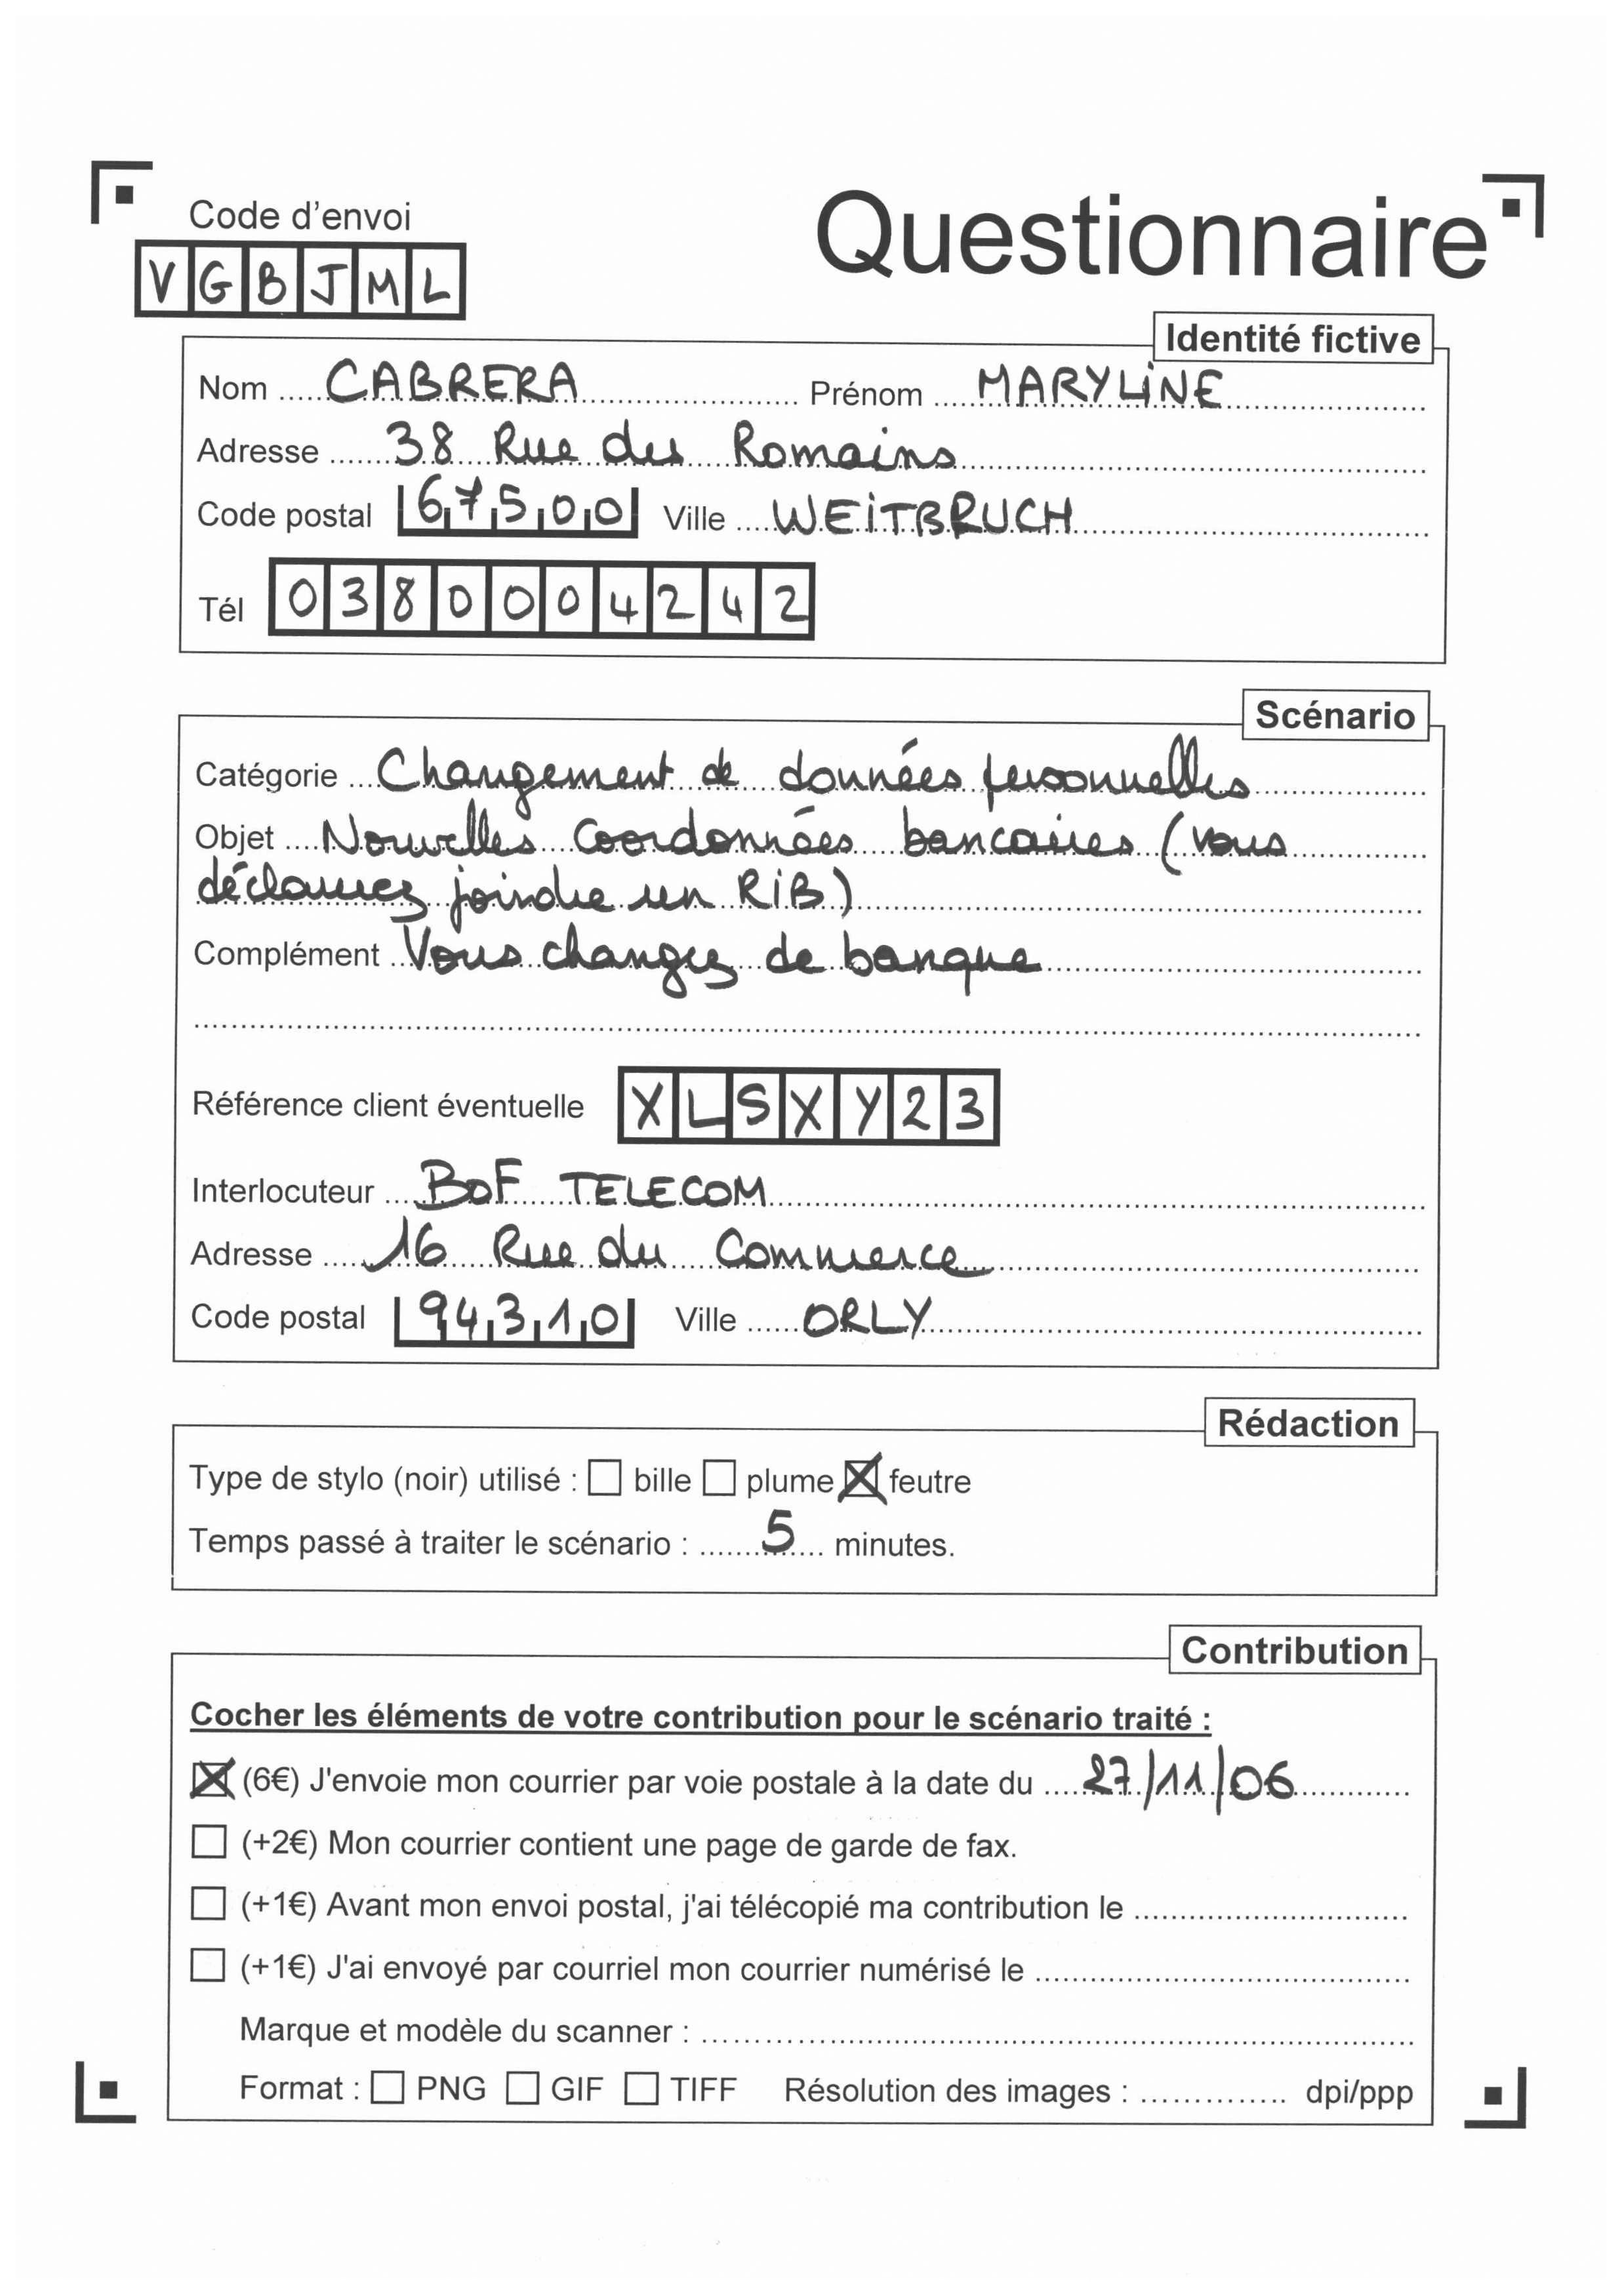 Code d'envoi
Questionnaire
VGBJML
Identité fictive
Nom CABRERA Prénom MARYLINE
Adresse 38 Rue des Romains
Code postal 67500 Ville WEITBRUCH
Tél 0380004242
Scénario
Catégorie Changement de données personnelles
Objet Nouvelles Coordonnées bancaires (vous
déclarez joindre un RIB)
Complément Vous changez de banque
Référence client éventuelle XLSXY23
Interlocuteur BOF TELECOM
Adresse 16 Rue du Commerce
Code postal 94310 Ville ORLY
Rédaction
Type de stylo (noir) utilisé : bille plume feutre
Temps passé à traiter le scénario : 5 minutes.
Contribution
Cocher les éléments de votre contribution pour le scénario traité :
(6€) J'envoie mon courrier par voie postale à la date du 27/11/06
(+2€) Mon courrier contient une page de garde de fax.
(+1€) Avant mon envoi postal, j'ai télécopié ma contribution le
(+1€) J'ai envoyé par courriel mon courrier numérisé le
Marque et modèle du scanner :
Format : PNG GIF TIFF Résolution des images : dpi/ppp